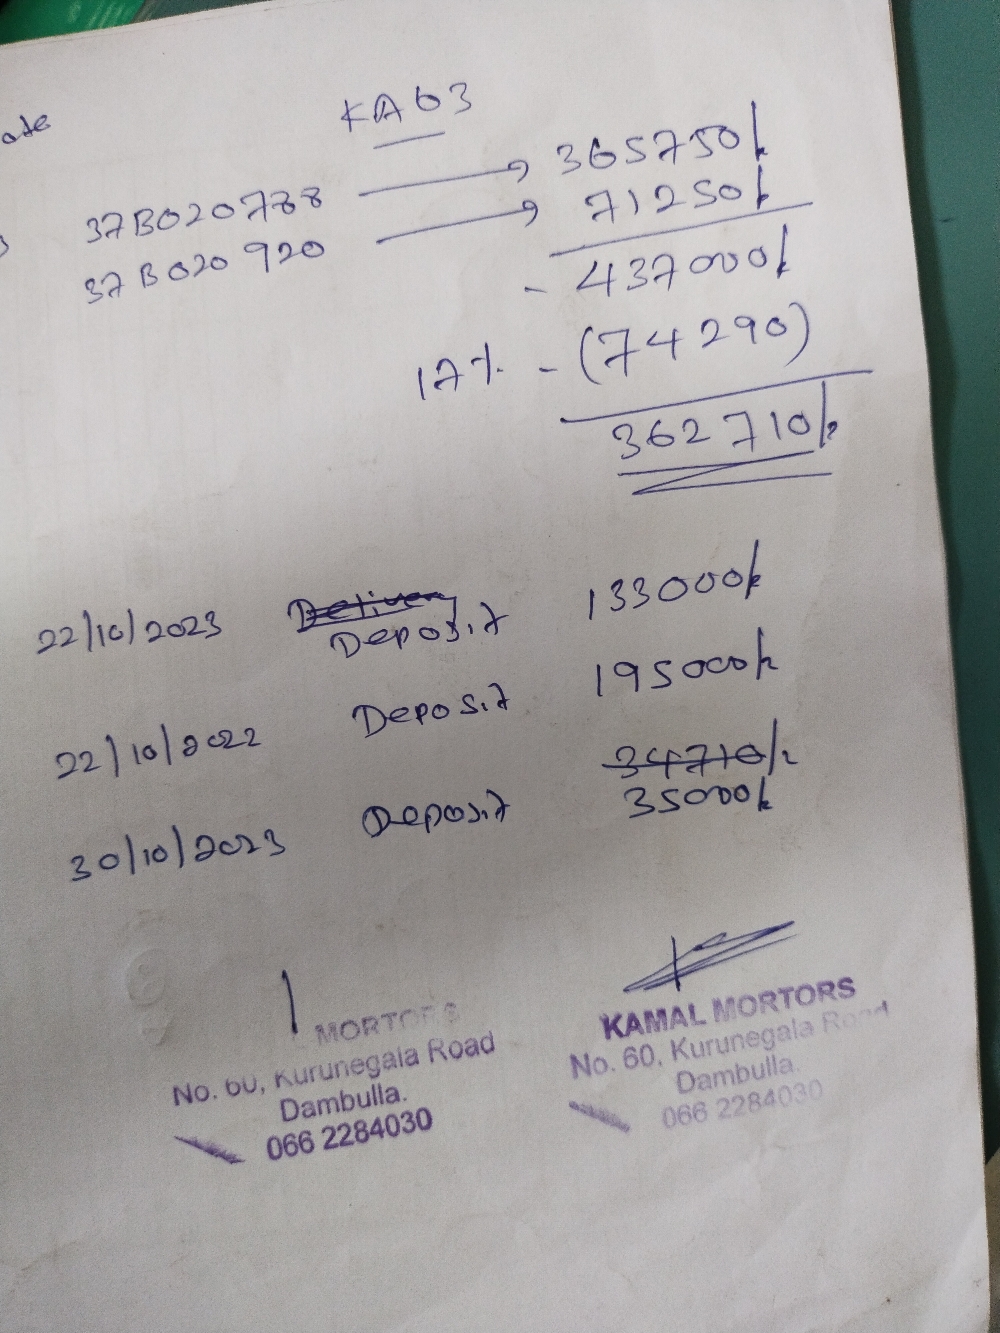 ate
KA63
37B020788 → 365750/-
37B020920 → 71250/-
- 437000/-
17% - (74290)
362710/-
22/10/2023 Deliver Deposit 133000/-
22/10/2022 Deposit 195000/-
34710/-
30/10/2023 Deposit 35000/-
MORTORS
No. 60, Kurunegala Road
Dambulla.
066 2284030
KAMAL MORTORS
No. 60, Kurunegala Road
Dambulla.
066 2284030